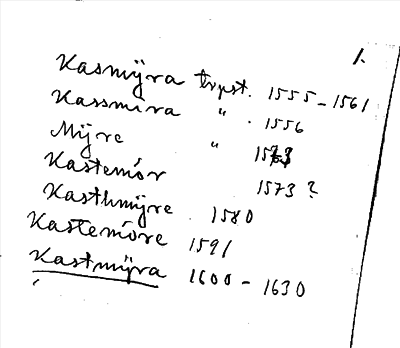 1.
Kasmÿra tryst. 1555-1561
Kassmira " . 1556
Mÿre " 1573
Kastemör 1573 ?
Kasthmÿre 1580
Kastemöre 1591
Kastmÿra 1600-1630